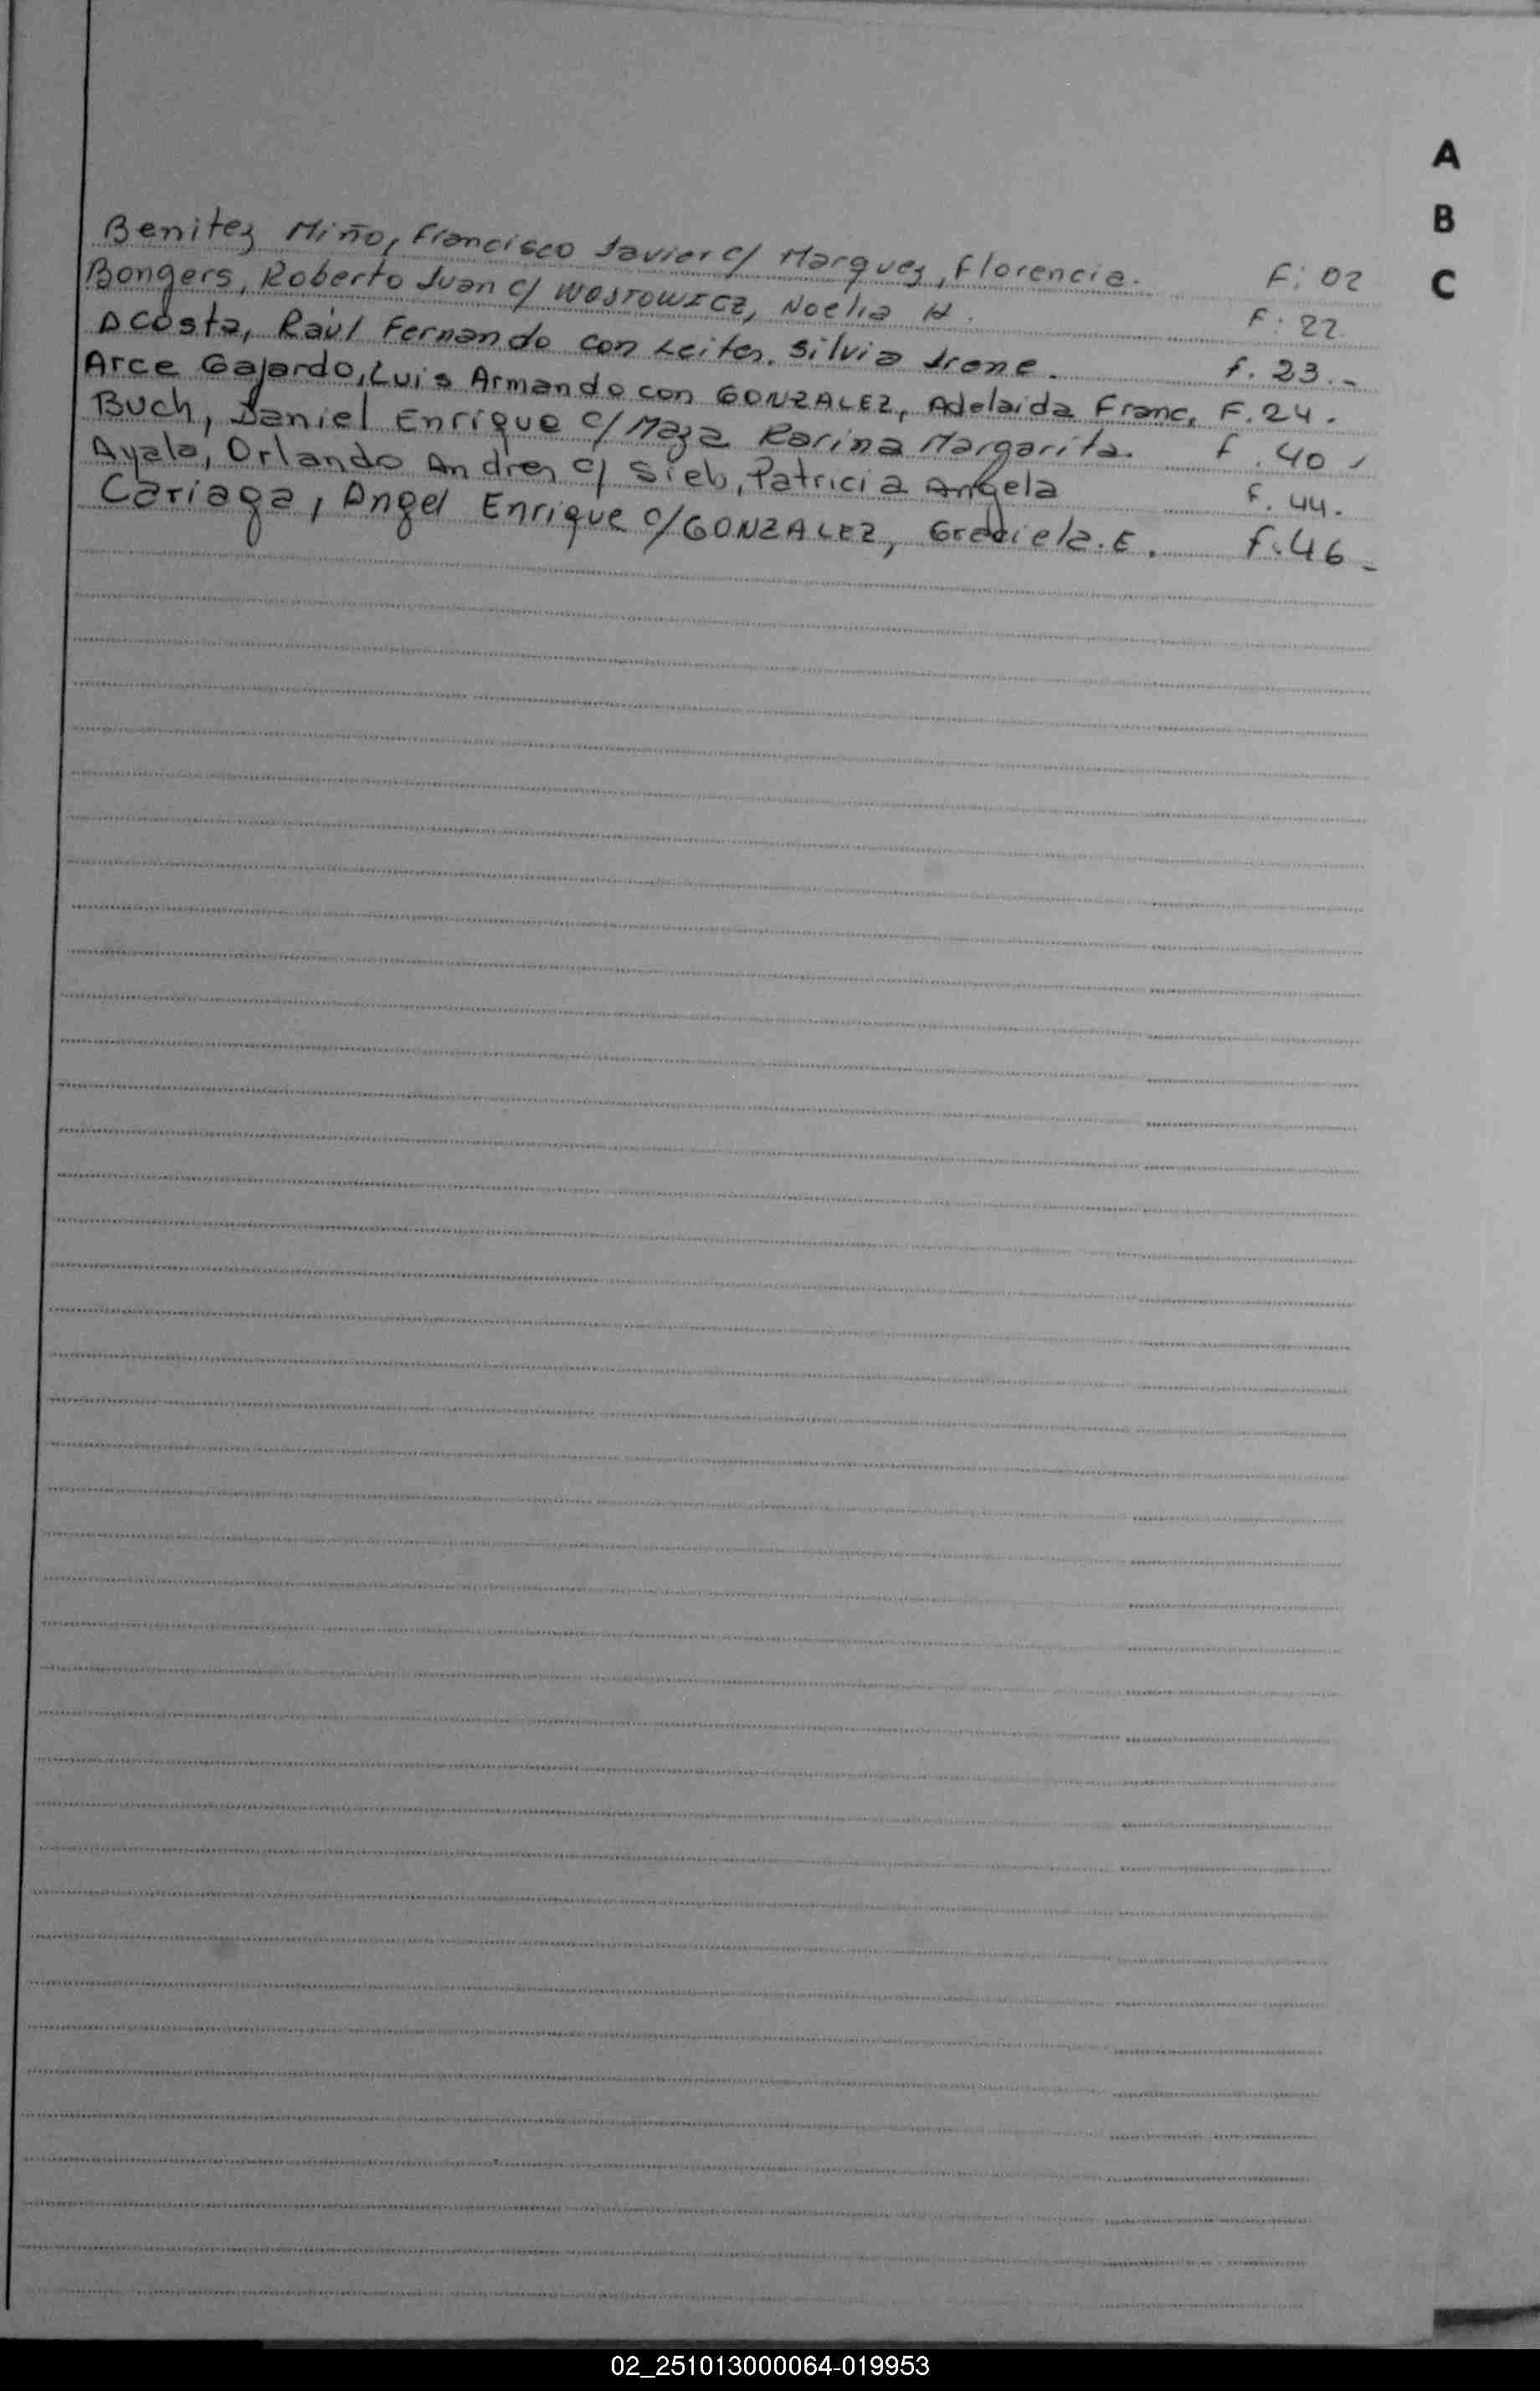 A
B
C
Benitez Miño, Francisco Javier c/ Marquez, Florencia. F: 02
Bongers, Roberto Juan c/ WOSTOWICZ, Noelia H. F: 22.
Acosta, Raúl Fernando con Leites. Silvia Irene. f. 23.-
Arce Gajardo, Luis Armando con GONZALEZ, Adelaida Franc. F. 24.
Buch, Daniel Enrique c/ Maza Karina Margarita. f. 40
Ayala, Orlando Andres c/ Sieb, Patricia Angela f. 44.
Cariaga, Angel Enrique c/ GONZALEZ, Graciela. E. f. 46-
02_251013000064-019953